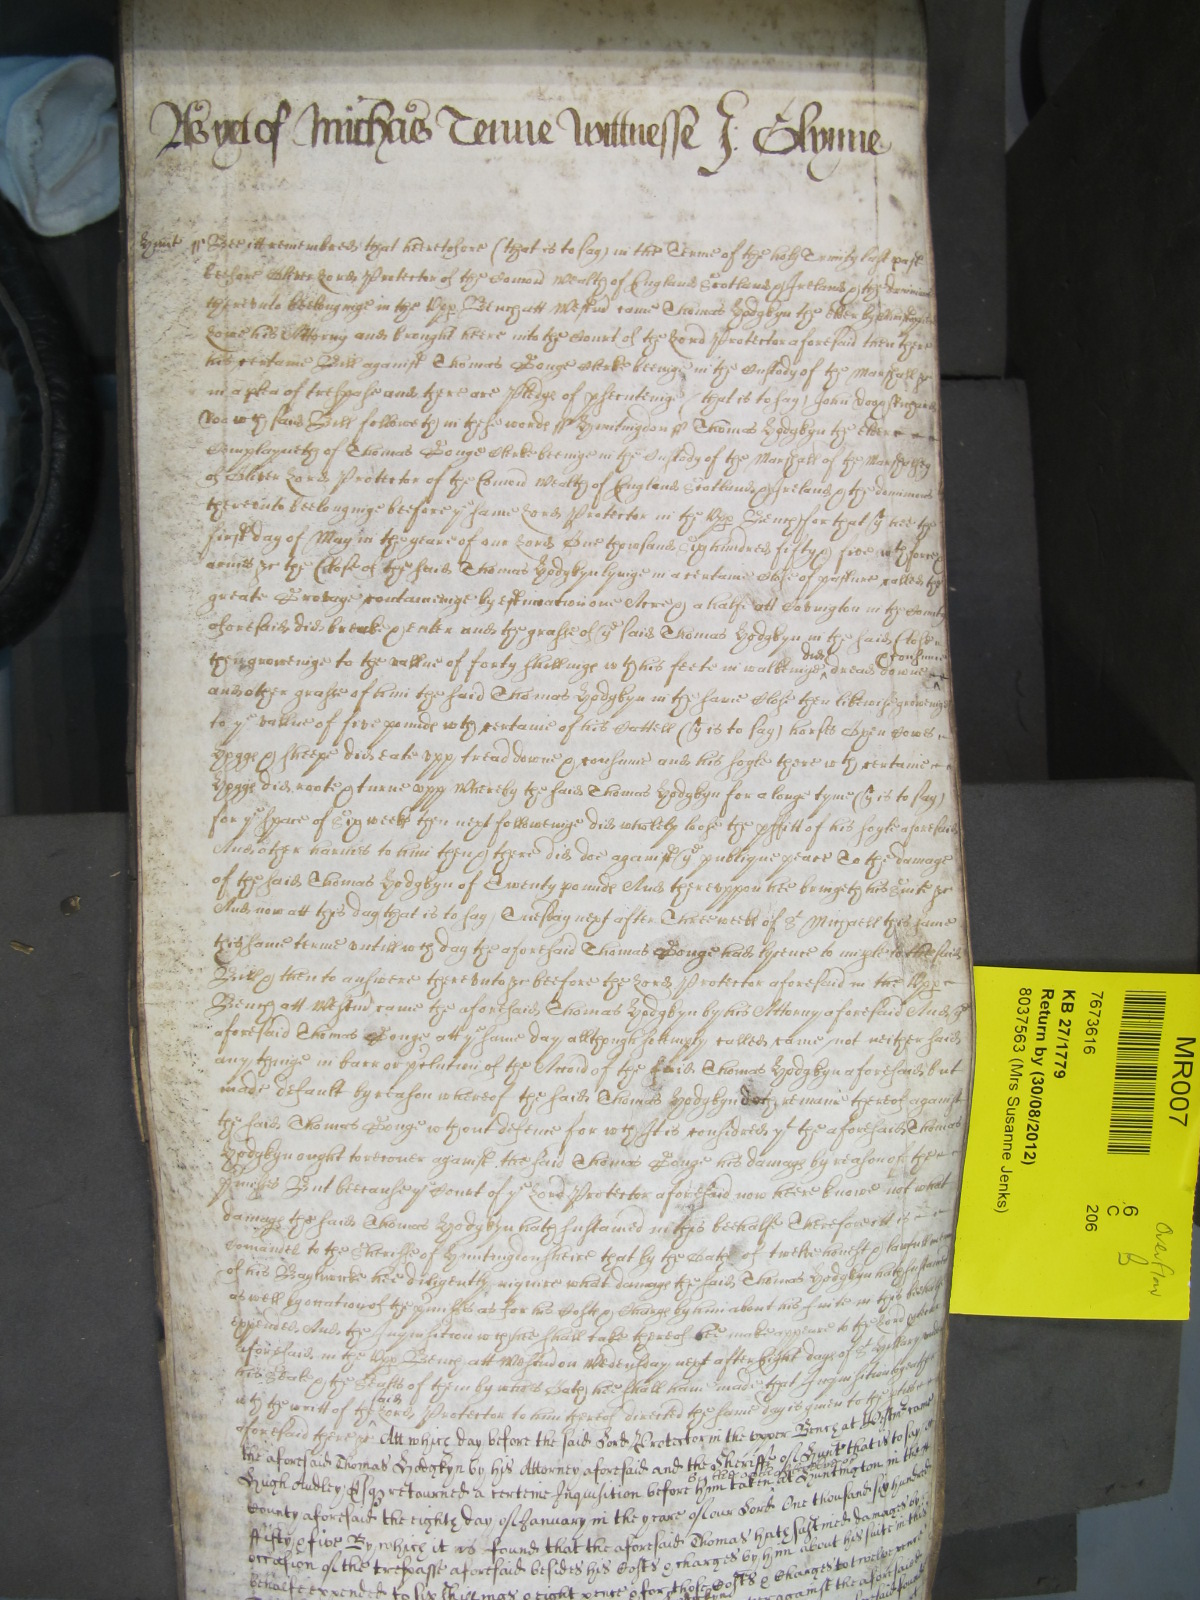 As yet of Michaes Terme Wittnesse J: Glynne
Hunt ss Bee itt remembred that heeretofore (that is to say) in the Terme of the holy Trinity last past
beefore Oliver Lord Protector of the Comon Wealth of England Scotland & Ireland & the dominions
thereunto beelonginge in the Upp Bench att Westmr came Thomas Hodgkyn the elder by
his Attorny and brought heere into the Court of the Lord Protector aforesaid then there
his certaine Bill against Thomas Bonge Clerke beeinge in the Custody of the Marshall &c
in a plea of trespasse and there are Pledges of psecutinge (that is to say) John Doo & Richard
Roo wch said Bill followeth in these words ss Huntingdon ss Thomas Hodgkyn the elder
Complayneth of Thomas Bonge Clerke beeinge in the Custody of the Marshall of the Marshalsey
of Oliver Lord Protector of the Comon Wealth of England Scotland & Ireland & the dominions
thereunto beelonginge beefore ye same Lord Protector in the Upp Bench for that yt hee the
first day of May in the yeare of our Lord One thowsand Six hundred fifty & five wth force &
armes &c the Close of the said Thomas Hodgkyn lyinge in a certaine Close of pasture called the
greate contaeininge by estimation one Acre & a halfe att Covington in the County
aforesaid did breake & enter and the grasse of ye said Thomas Hodgkyn in the said Close
then groweinge to the vallue of forty shillings wth his feete in walkeinge did tread downe & consume
and other grasse of him the said Thomas Hodgkyn in the same Close then likewise groweinge
to ye vallue of five pounds wth certaine of his Cattell (yt is to say) horses Oxen Cowes
Hoggs & sheepe did eate upp tread downe & consume and his soyle there wth certaine
Hoggs did roote & turne upp Whereby the said Thomas Hodgkyn for a longe tyme (yt is to say)
for ye space of Six weeks then next followeinge did wholely loose the pffitt of his soyle aforesaid
And other harmes to him then & there did doe against ye publique peace To the damage
of the said Thomas Hodgkyn of Twenty pounds And thereuppon hee bringeth his Suite &c
And now att this day that is to say Tuesday next after Three weeks of St Michaell this same
this same terme untill wch day the aforesaid Thomas Bonge had lycence to imple to the said
Bill & then to answere thereunto &c beefore the Lord Protector aforesaid in the Upp
Bench att Westmr came the aforesaid Thomas Hodgkyn by his Attorny aforesaid And ye
aforesaid Thomas Bonge att ye same day allthough solempnly called came not neither said
any thinge in barr or pclusion of the Accion of the said Thomas Hodgkyn aforesaid but
made default by reason whereof the said Thomas Hodgkyn doth remaine thereof against
the said Thomas Bonge wthout defence for wch It is considred yt the aforesaid Thomas
Hodgkyn ought to recover against the said Thomas Bonge his damages by reason of the
pmisses But beecause ye Court of ye Lord Protector aforesaid now heere knowe not what
damage the said Thomas Hodgkyn hath sustained in this beehalfe Therefore itt is
comanded to the Sheriffe of Huntingdonsheire that by the Oath of twelve honest & lawfull men
of his Baylywicke hee diligently inquire what damage the said Thomas Hodgkyn hath sustained
as well by occation of the pmisses as for his Costs & Charges by him about his suite in this beehalfe
expended And the Inquisition wch hee shall take thereof hee make appeare to the Lord Protector
aforesaid in the Upp Bench att Westmr on Wedensday next after Eight dayes of St Hillary under
his Seale & the Seales of them by whose Oath hee shall have made that Inquisition together
wth the writt of the said Lord Protector to him thereof directed the same day is given to the
aforesaid there &c Att which day before the said Lord Protector in the upper Bench at Westmr came
the aforesaid Thomas Hodgkyn by his Attorney aforesaid and the Sheriffe of Hunt that is to say
Hugh Audley Esqr retourned a certeine Inquisition before him taken at Huntington in the
County aforesaid the eighth day of January in the yeare of our Lord One thousand six hundred
ffifty & five By which it is found that the aforesaid Thomas hath susteined damages by
occasion of the trespasse aforesaid besides his Costs & charges by him about his suite in this
behalfe expended to six shillings & eight pence & for those Costs & Charges to twelve pence
MR007
7673616
KB 27/1779
Return by (30/08/2012)
8037563 (Mrs Susanne Jenks)
6
C
206
Overflow